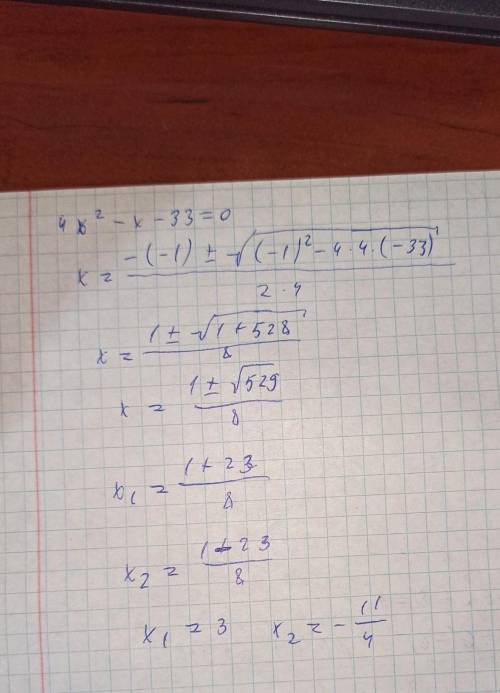 4x² - x - 33 = 0
x = (-(-1) ± √((-1)² - 4 · 4 · (-33))) / (2 · 4)
x = (1 ± √(1 + 528)) / 8
x = (1 ± √529) / 8
x₁ = (1 + 23) / 8
x₂ = (1 - 23) / 8
x₁ = 3 x₂ = - 11/4